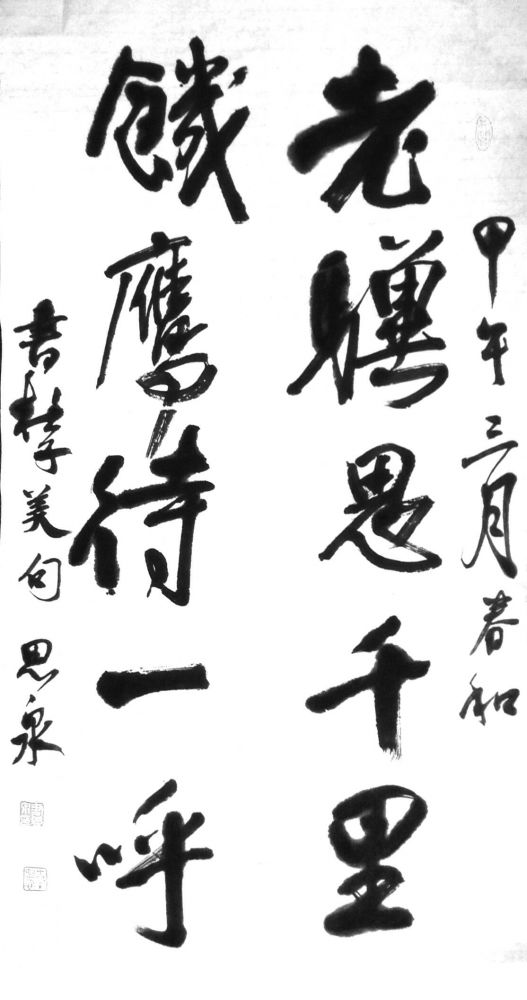 甲午三月春和
老驥思千里
饑鷹待一呼
書杜子美句 思泉